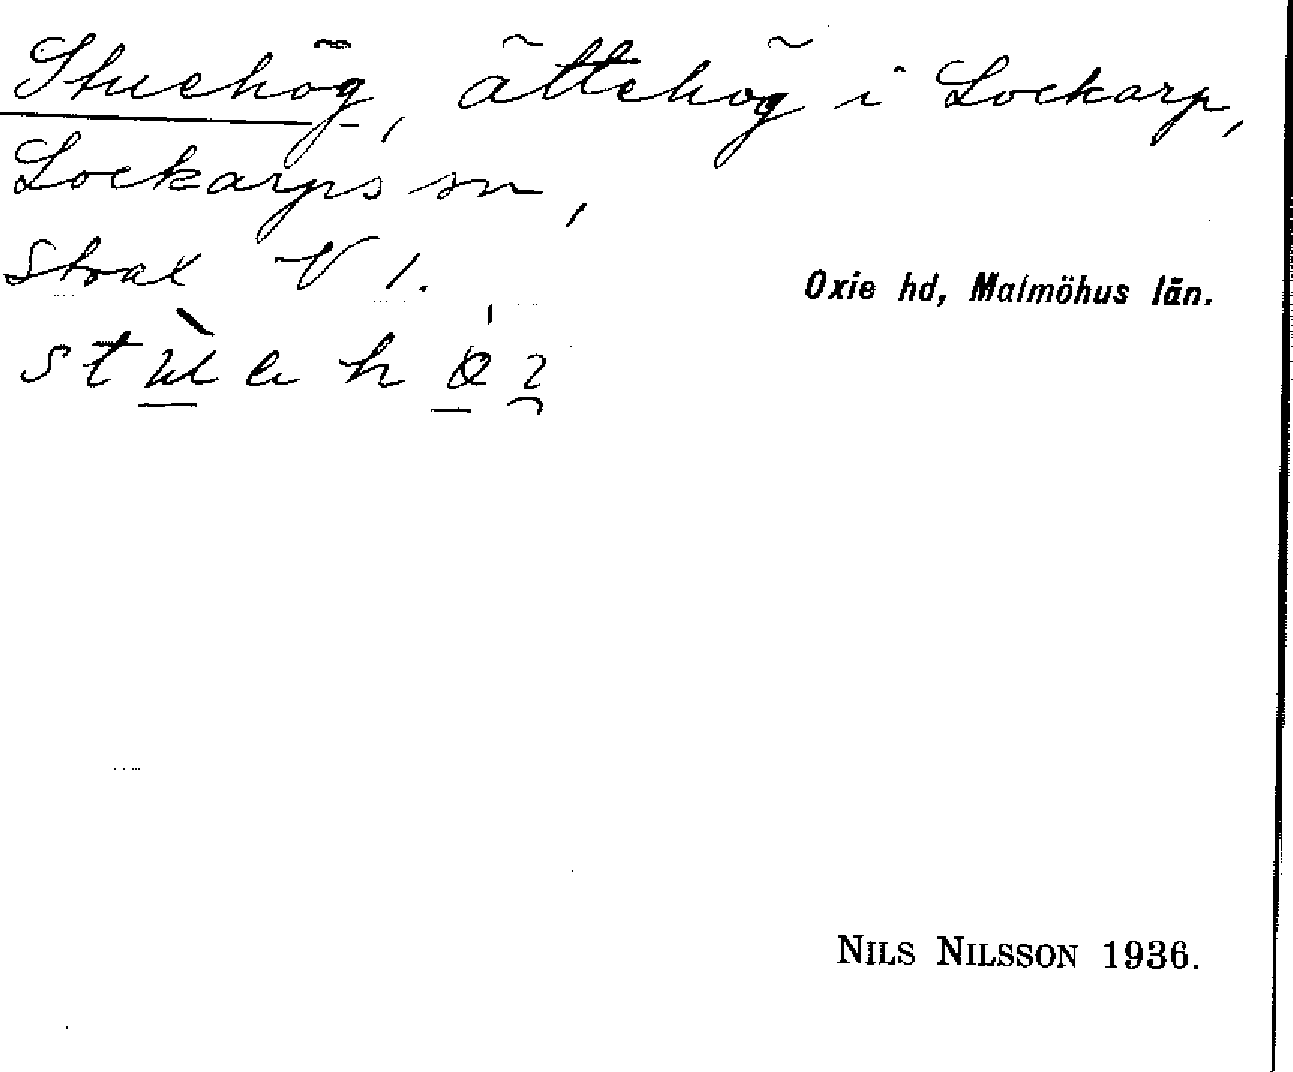 Stuehög, ättehög i Lockarp,
Lockarps sn,
strax V 1.
Oxie hd, Malmöhus län.
NILS NILSSON 1936.